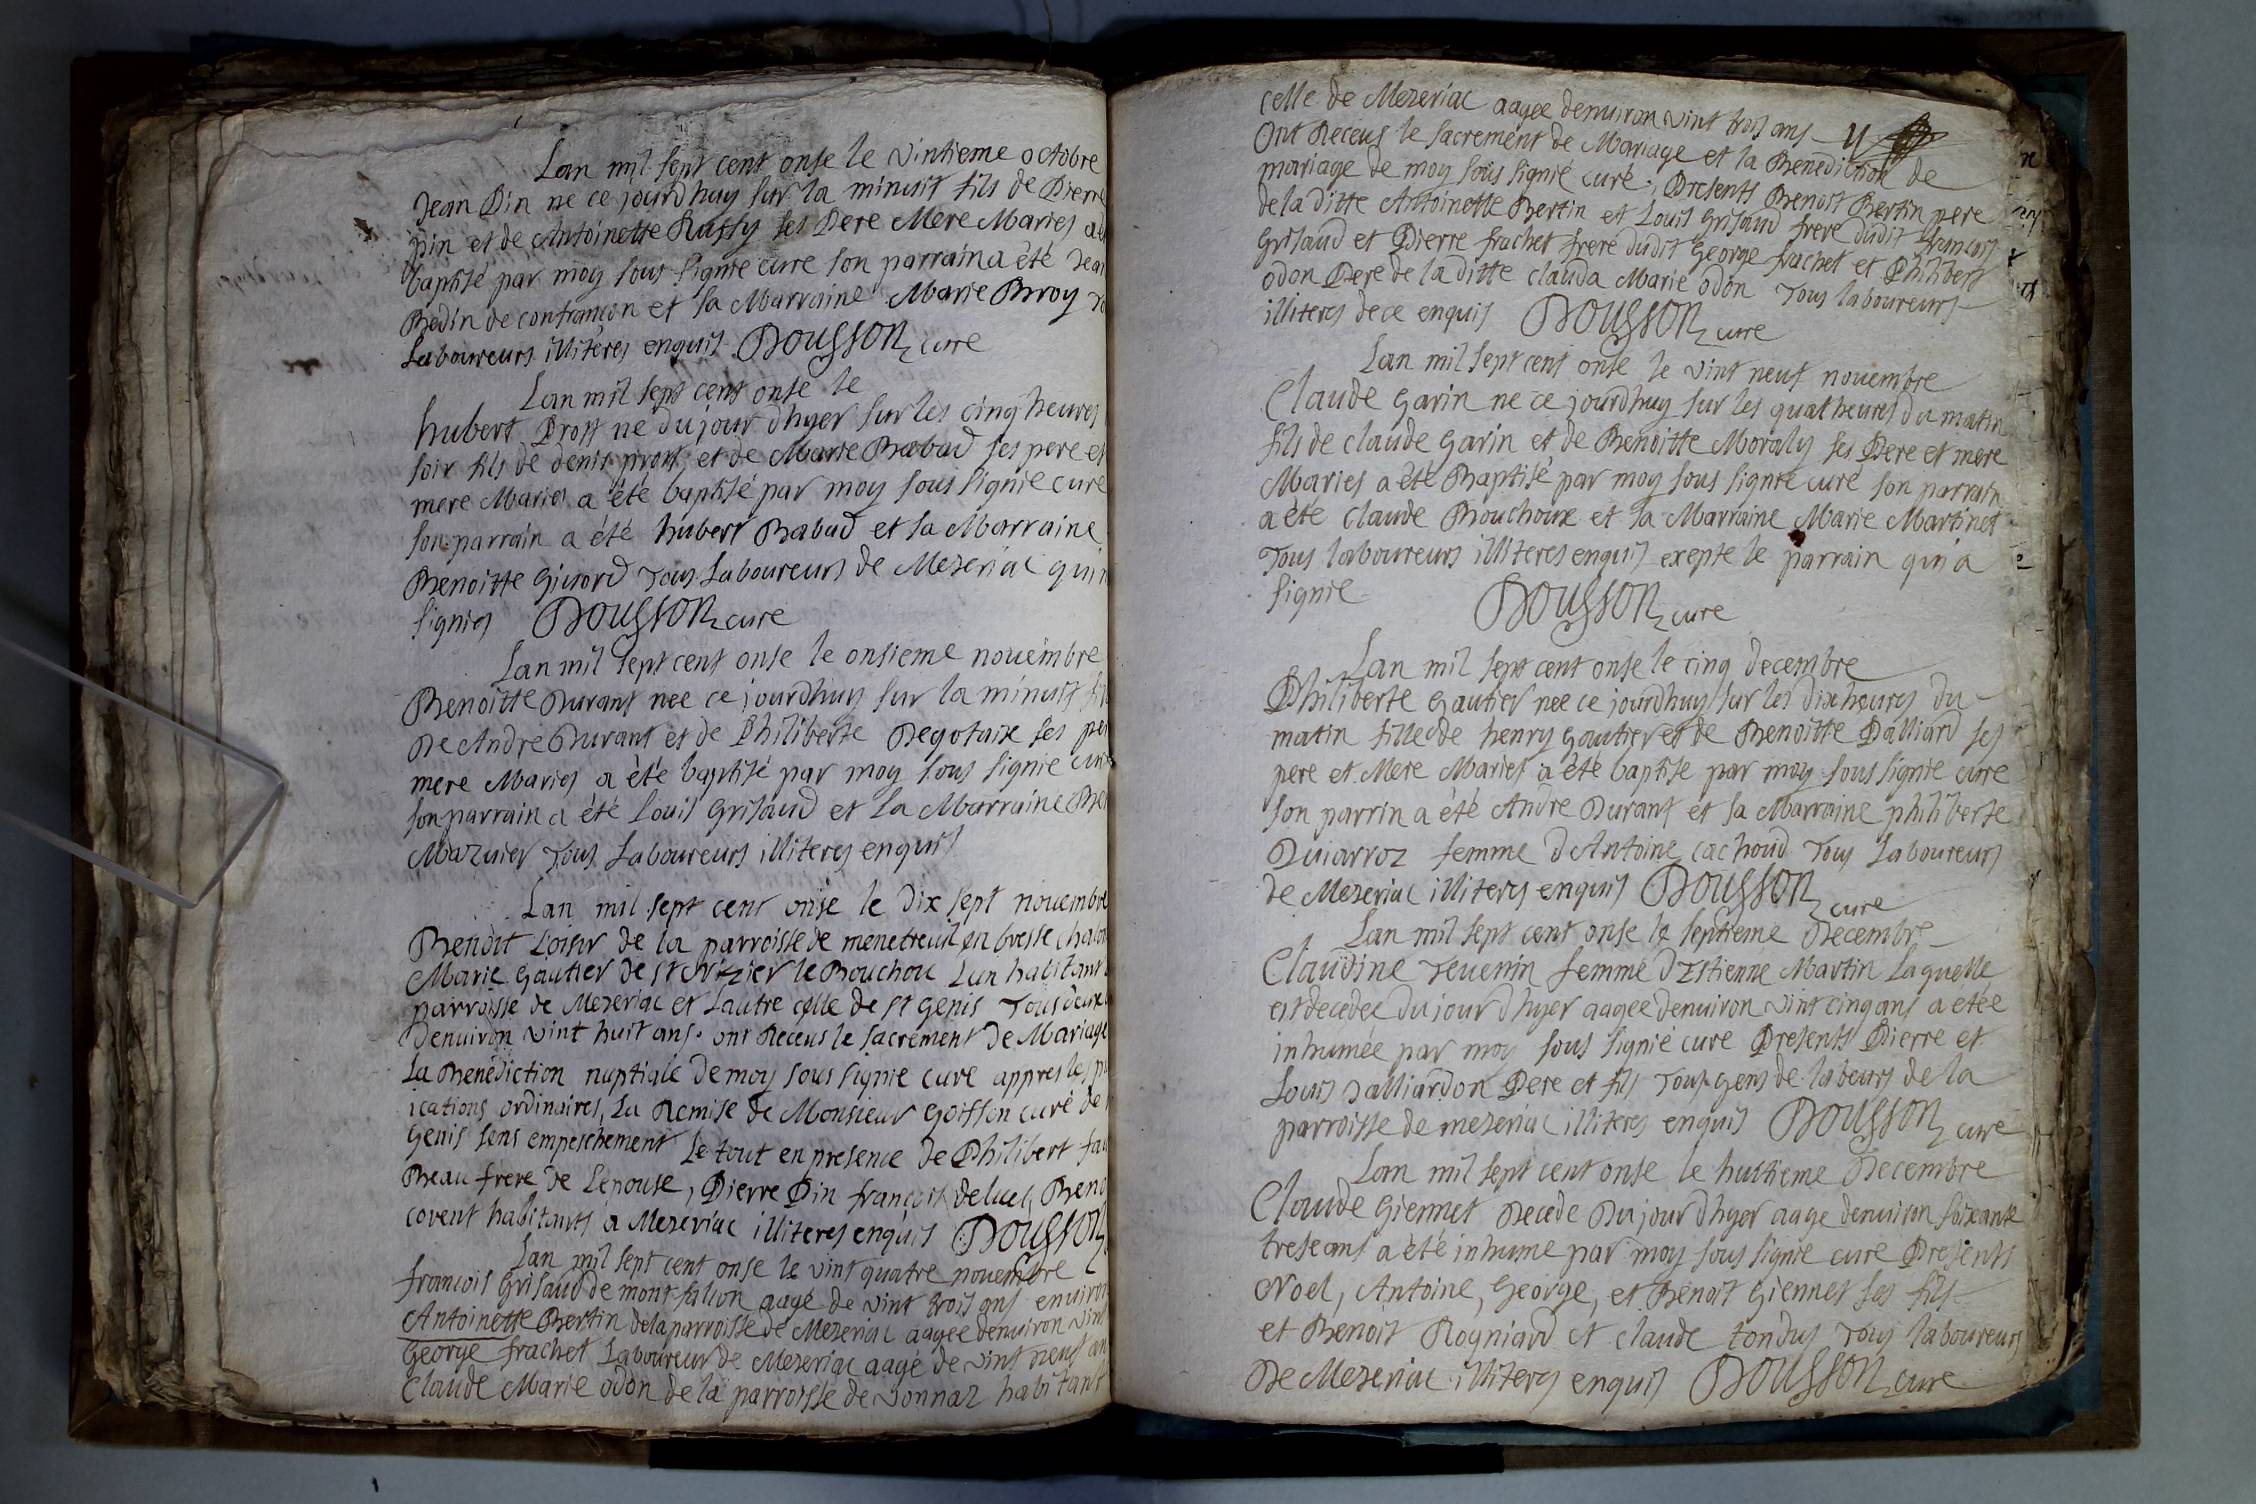 Lan mil sept cent onse le vintieme octobre
Jean Pin ne ce jourdhuy sur la minuit fils de Pierre
pin et de Antoinette Ruffy ses Pere Mere Maries a
baptisé par moy sous signie cure son parrain a été Jean
Bedin de confrançon et sa Marraine Marie Broy
Laboureurs illiteres enquis Dousson cure
Lan mil sept cent onse le
hubert Prost ne du jour dhyer sur les cinq heures
soir fils de denis prost et de Marie Babad ses pere et
mere Maries a été baptisé par moy sous signie cure
son parrain a été hubert Babad et sa Marraine
Benoitte Givord Tous Laboureurs de Mezeriac qui
signies Dousson cure
Lan mil sept cent onse le onsieme nouembre
Benoitte Durant nee ce jourdhuy sur la minuit
De Andre Durant et de Philiberte Degotaix ses
mere Maries a été baptisé par moy sous signie cure
son parrain a été Louis Grisaud et La Marraine
Mazuier Tous Laboureurs illiteres enquis
Lan mil sept cent onse le dix sept nouembre
Benoit Loisir de la parroisse de menetreuil en bresse
Marie Gautier de st Nizier le Bouchou Lun habitant
parroisse de Mezeriac et Lautre celle de st Genis Tous deux
denuiron vint huit ans ont Receus le sacrement de Mariage
La Benediction nuptiale de moy sous signie cure appres les
ications ordinaires, La Remise de Monsieur Goiffon curé de
Genis sens empeschement Le tout en presence de Philibert
Beau frere de Lepouse, Pierre Pin françois deluel, Beno
covent habitants a Mezeriac illiteres enquis Dousson
Lan mil sept cent onse le vint quatre nouembre
francois Grisaud de mont falion aagé de vint trois ans environ
Antoinette Bertin de la parroisse de Mezeriac aagee denuiron vint
George frachet Laboureur de Mezeriac aagé de vint neuf an
Claude Marie odon de la parroisse de vonnaz habitant
celle de Mezeriac aagee denuiron vint trois ans
Ont Receus le sacrement de Mariage et la Benediction de
mariage de moy sous signié curé, Presents Benoit Bertin pere
de la ditte Antoinette Bertin et Louis Grisaud frere dudit francois
Grisaud et Pierre frachet frere dudit George frachet et Philibert
odon Pere de la ditte clauda Marie odon Tous laboureurs
illiteres de ce enquis Dousson cure
Lan mil sept cent onse le vint neuf nouembre
Claude Garin ne ce jourdhuy sur les quat heures du matin
fils de claude Garin et de Benoitte Moraly ses Pere et mere
Maries a été Baptisé par moy sous signie curé son parrain
a été Claude Bouchoux et sa Marraine Marie Martinet
Tous laboureurs illiteres enquis exepte le parrain qui a
signie Dousson cure
Lan mil sept cent onse le cinq decembre
Philiberte Gautier nee ce jourdhuy sur les dix heures du
matin fille de henry Gautier et de Benoitte Dalliard ses
pere et Mere Maries a été baptise par moy sous signie cure
son parrin a été Andre Durant et sa Marraine philiberte
Duiarroz femme d Antoine cachoud Tous Laboureurs
de Mezeriac illiteres enquis Dousson cure
Lan mil sept cent onse le septieme Decembre
Claudine Teuenin femme d Estienne Martin Laquelle
est decedee du jour d hyer aagee denuiron vint cinq ans a étée
inhumée par moy sous signié cure Presents Pierre et
Louis Dalliardon Pere et fils Tous gens de labeurs de la
parroisse de mezeriac illiteres enquis Dousson cure
Lan mil sept cent onse le huitieme Decembre
Claude Giennet Decede Du jour dhyer aage denuiron soixante
trese ans a été inhume par moy sous signie cure Presents
Noel, Antoine, George, et Benoit Giennet ses fils
et Benoit Rogniard et claude tondus Tous laboureurs
De Mezeriac illiteres enquis Dousson cure